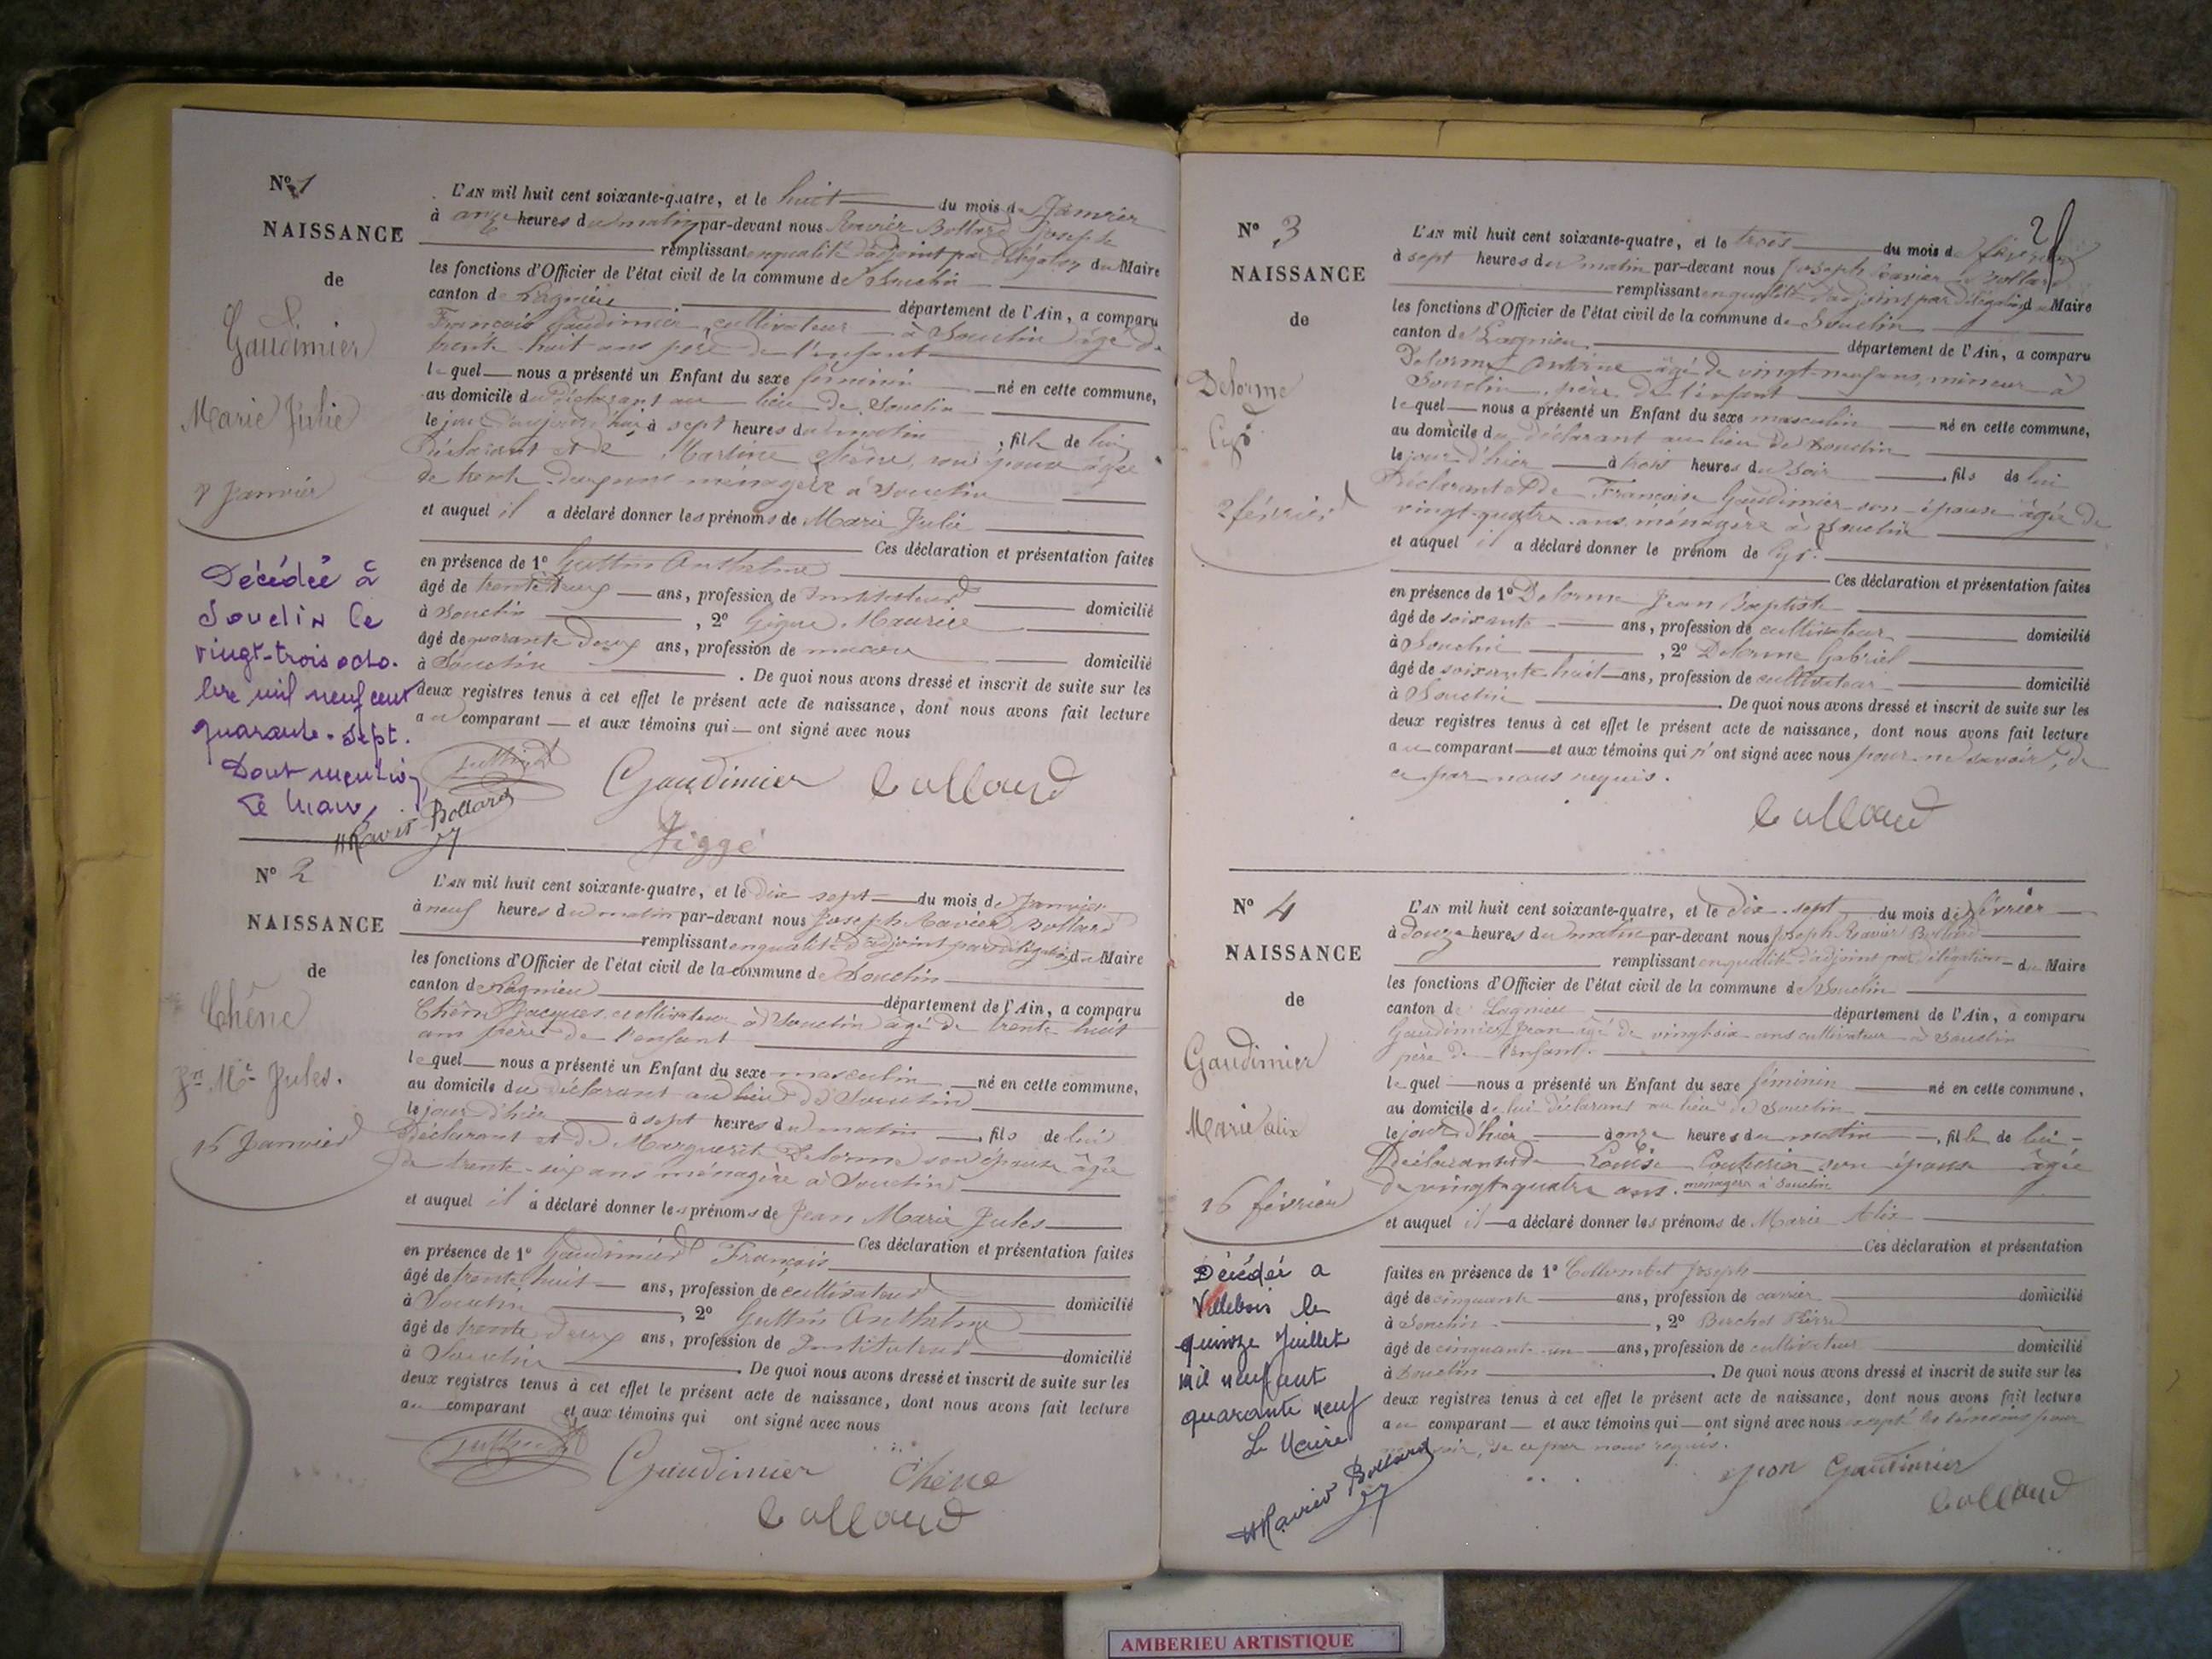 Nº 1
NAISSANCE
de
Gaudimier
Marie Julie
8 Janvier
Décédée à
Souclin le
vingt-trois octo-
bre mil neuf cent
quarante-sept.
Dont mention
Le Maire,
HRavier-Bollard
L'AN mil huit cent soixante-quatre, et le huit du mois de Janvier
à onze heures du matin par-devant nous Ravier Bollard Joseph
remplissant en qualité d'adjoint par délégation du Maire
les fonctions d'Officier de l'état civil de la commune de Souclin
canton de Lagnieu département de l'Ain, a comparu
François Gaudimier, cultivateur à Souclin âgé de
trente-huit ans père de l'enfant
lequel nous a présenté un Enfant du sexe féminin né en cette commune,
au domicile du déclarant au lieu de Souclin
le jour d'aujourd'hui à sept heures du matin, fille de lui
Déclarant et de Martine Chêne, son épouse âgée
de trente-deux ans ménagère à Souclin
et auquel il a déclaré donner les prénoms de Marie Julie
Ces déclaration et présentation faites
en présence de 1º Guttin Anthelme
âgé de trente deux ans, profession de Instituteur domicilié
à Souclin, 2º Gigue Maurice
âgé de quarante deux ans, profession de maçon domicilié
à Souclin. De quoi nous avons dressé et inscrit de suite sur les
deux registres tenus à cet effet le présent acte de naissance, dont nous avons fait lecture
au comparant et aux témoins qui ont signé avec nous
Guttin Gaudimier Bollard
Nº 2
NAISSANCE
de
Chêne
Jn Mie Jules.
16 Janvier
L'AN mil huit cent soixante-quatre, et le dix sept du mois de Janvier
à neuf heures du matin par-devant nous Joseph Ravier Bollard
remplissant en qualité d'adjoint par délégation du Maire
les fonctions d'Officier de l'état civil de la commune de Souclin
canton de Lagnieu département de l'Ain, a comparu
Chêne Jacques, cultivateur à Souclin âgé de trente huit
ans père de l'enfant
lequel nous a présenté un Enfant du sexe masculin né en cette commune,
au domicile du déclarant au lieu de Souclin
le jour d'hier à sept heures du matin, fils de lui
Déclarant et de Marguerite Delorme son épouse âgée
de trente-six ans ménagère à Souclin
et auquel il a déclaré donner les prénoms de Jean Marie Jules
Ces déclaration et présentation faites
en présence de 1º Gaudimier François
âgé de trente huit ans, profession de cultivateur domicilié
à Souclin, 2º Guttin Anthelme
âgé de trente deux ans, profession de Instituteur domicilié
à Souclin. De quoi nous avons dressé et inscrit de suite sur les
deux registres tenus à cet effet le présent acte de naissance, dont nous avons fait lecture
au comparant et aux témoins qui ont signé avec nous
Guttin Gaudimier Chêne
Bollard
2
Nº 3
NAISSANCE
de
Delorme
Cyr
2 février
L'AN mil huit cent soixante-quatre, et le trois du mois de février
à sept heures du matin par-devant nous Joseph Ravier Bollard
remplissant en qualité d'adjoint par délégation du Maire
les fonctions d'Officier de l'état civil de la commune de Souclin
canton de Lagnieu département de l'Ain, a comparu
Delorme Antoine âgé de vingt-neuf ans, mineur à
Souclin, père de l'enfant
lequel nous a présenté un Enfant du sexe masculin né en cette commune,
au domicile du déclarant au lieu de Souclin
le jour d'hier à trois heures du soir, fils de lui
Déclarant et de Françoise Gaudimier son épouse âgée de
vingt-quatre ans, ménagère à Souclin
et auquel il a déclaré donner le prénom de Cyr.
Ces déclaration et présentation faites
en présence de 1º Delorme Jean Baptiste
âgé de soixante ans, profession de cultivateur domicilié
à Souclin, 2º Delorme Gabriel
âgé de soixante huit ans, profession de cultivateur domicilié
à Souclin. De quoi nous avons dressé et inscrit de suite sur les
deux registres tenus à cet effet le présent acte de naissance, dont nous avons fait lecture
au comparant et aux témoins qui n'ont signé avec nous pour ne savoir, de
ce par nous requis.
Bollard
Nº 4
NAISSANCE
de
Gaudimier
Marie alix
16 février
Décédée a
Villebois le
quinze Juillet
mil neuf cent
quarante neuf
Le Maire
HRavier Bollard
L'AN mil huit cent soixante-quatre, et le dix-sept du mois de février
à douze heures du matin par-devant nous Joseph Ravier Bollard
remplissant en qualité d'adjoint par délégation du Maire
les fonctions d'Officier de l'état civil de la commune de Souclin
canton de Lagnieu département de l'Ain, a comparu
Gaudimier Jean âgé de vingt-six ans cultivateur à Souclin
père de l'enfant.
lequel nous a présenté un Enfant du sexe féminin né en cette commune,
au domicile de lui déclarant au lieu de Souclin
le jour d'hier à onze heures du matin, fille de lui
Déclarant et de Louise Couturier son épouse âgée
de vingt-quatre ans. ménagère à Souclin
et auquel il a déclaré donner les prénoms de Marie Alix
Ces déclaration et présentation
faites en présence de 1º Collombet Joseph
âgé de cinquante ans, profession de carrier domicilié
à Souclin, 2º Berchet Pierre
âgé de cinquante-un ans, profession de cultivateur domicilié
à Souclin. De quoi nous avons dressé et inscrit de suite sur les
deux registres tenus à cet effet le présent acte de naissance, dont nous avons fait lecture
au comparant et aux témoins qui ont signé avec nous excepté les témoins pour
ne savoir, de ce par nous requis.
Gaudimier
Bollard
AMBERIEU ARTISTIQUE